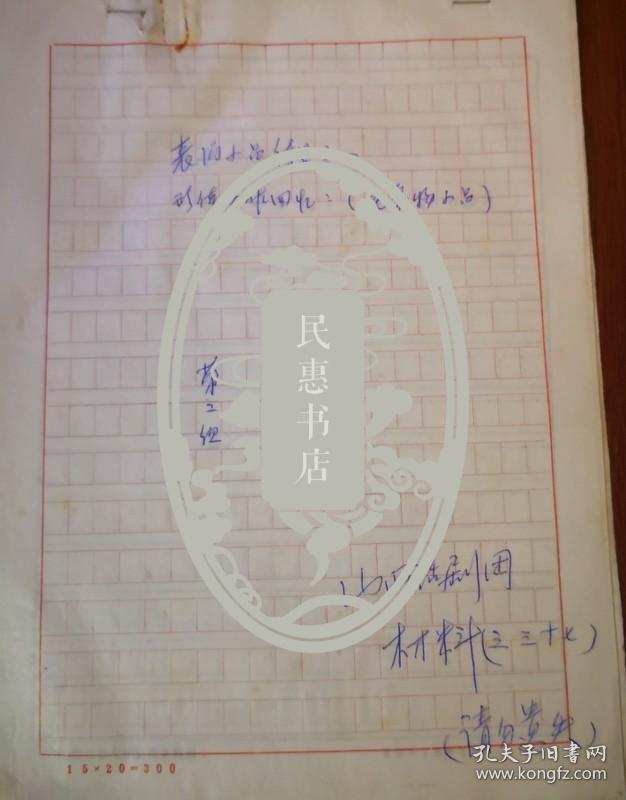 表演小品
形体 回忆二(动物小品)
第二组
民惠书店
山西话剧团
材料(三三十七)
(请勿遗失)
15×20=300
孔夫子旧书网
www.kongfz.com